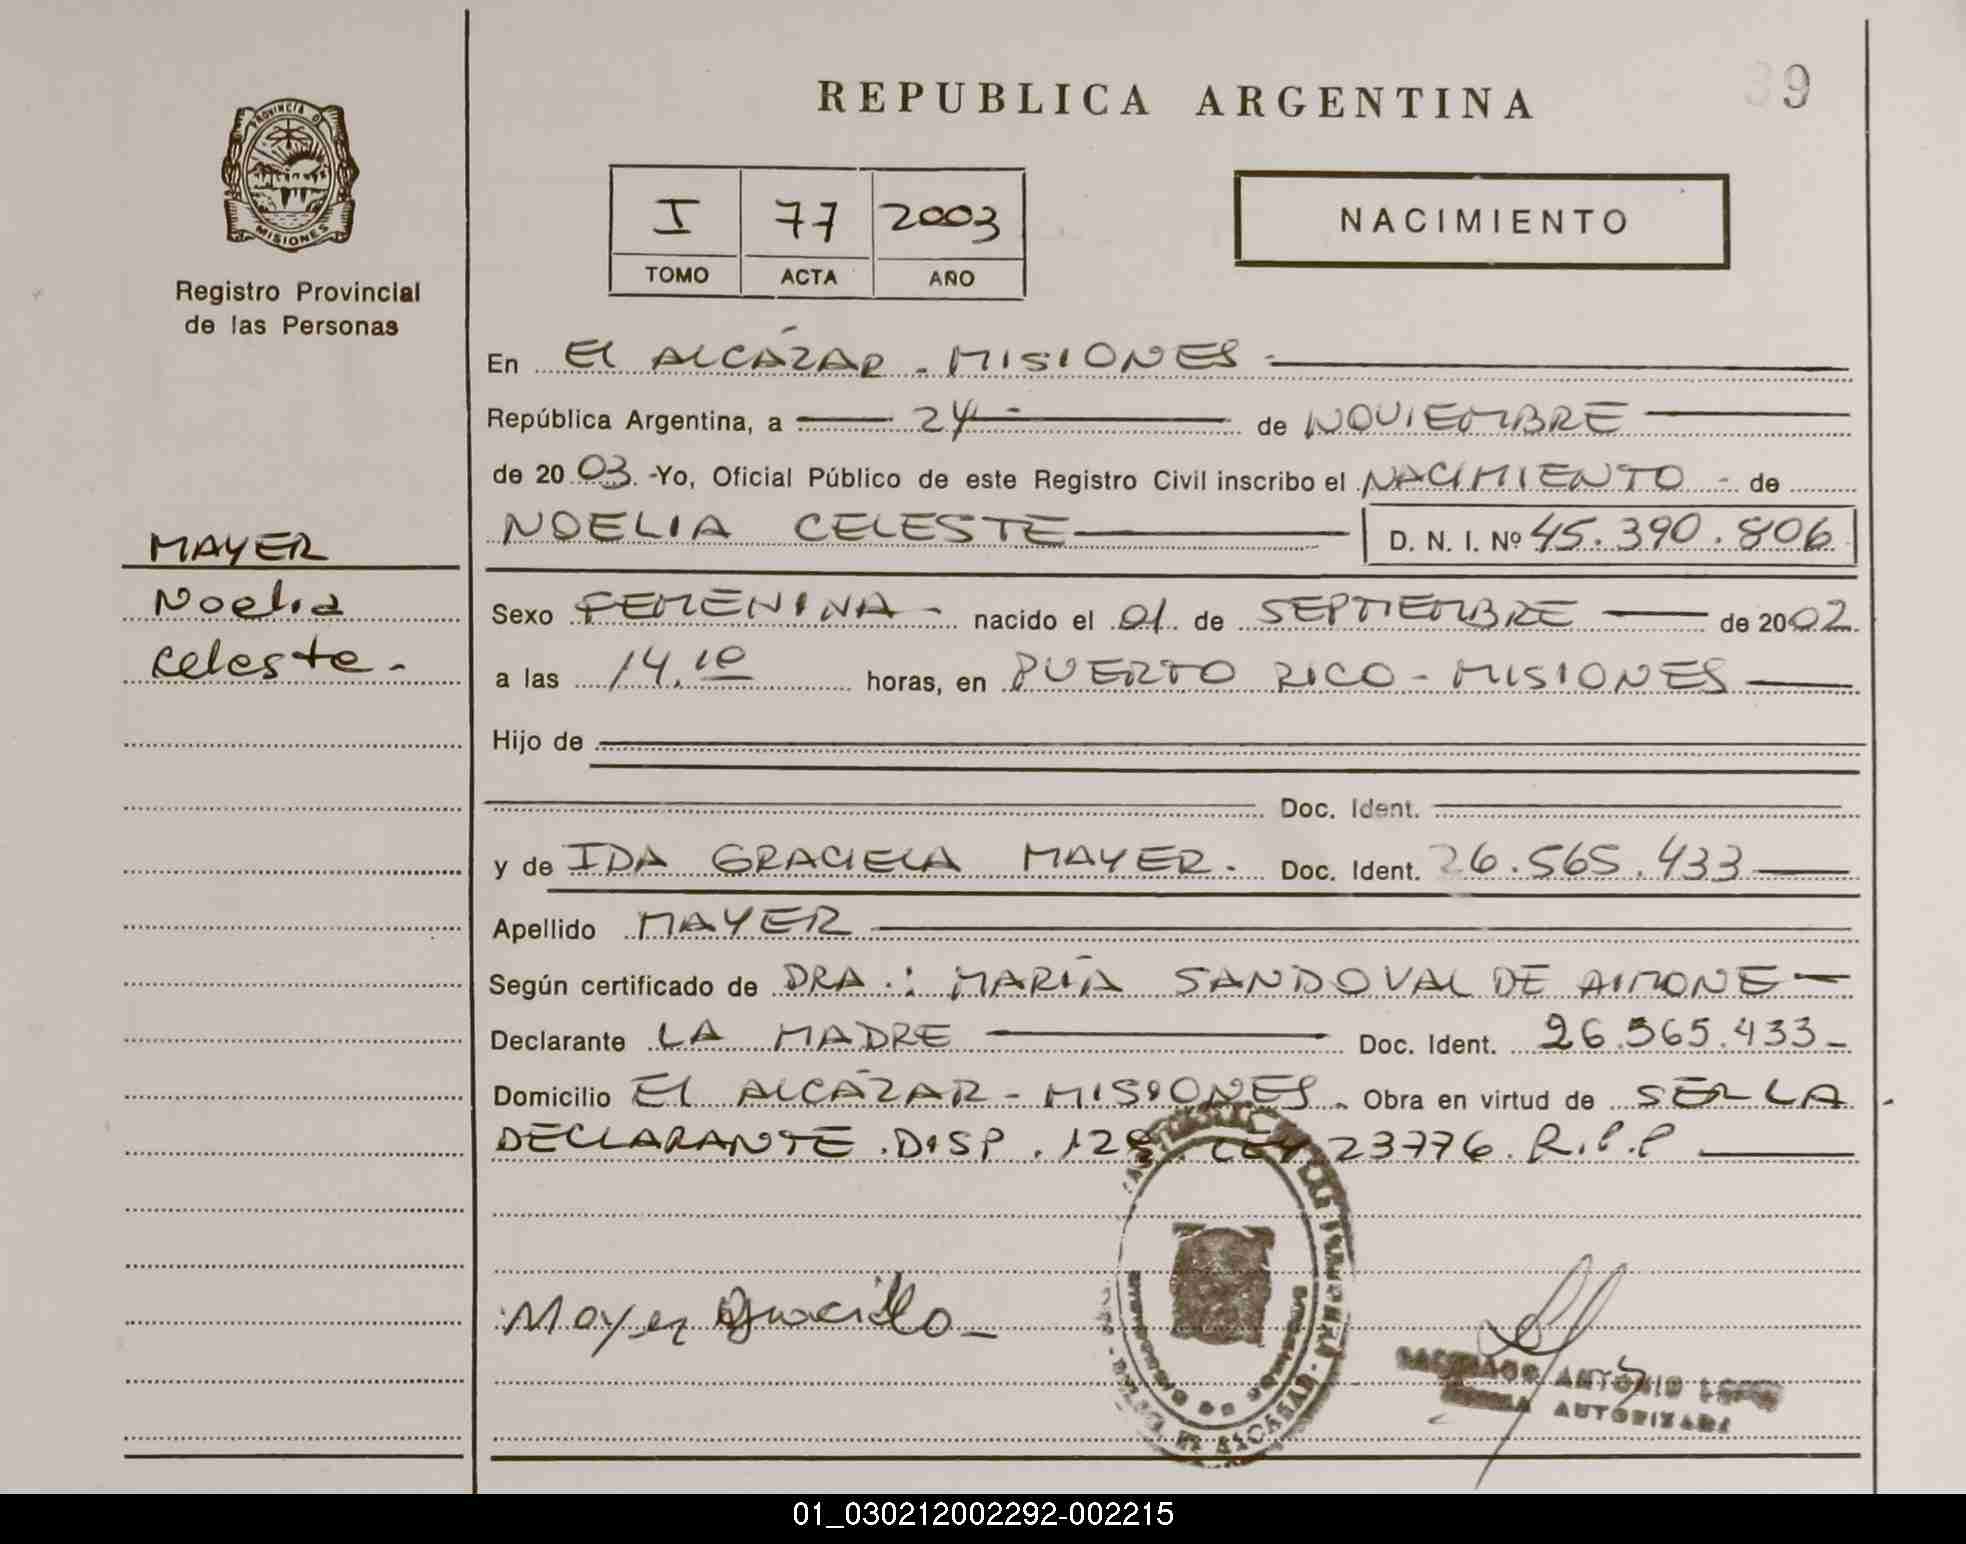 REPUBLICA ARGENTINA
39
PROVINCIA D
MISIONES
Registro Provincial
de las Personas
I 77 2003
TOMO ACTA AÑO
NACIMIENTO
En El ALCÁZAR - MISIONES -
República Argentina, a 24 - de NOVIEMBRE
de 20 03 -Yo, Oficial Público de este Registro Civil inscribo el NACIMIENTO - de
NOELIA CELESTE D. N. I. Nº 45.390.806
MAYER
Noelia
Celeste -
Sexo FEMENINA - nacido el 01 de SEPTIEMBRE de 2002
a las 14.10 horas, en PUERTO RICO - MISIONES
Hijo de
Doc. Ident.
y de IDA GRACIELA MAYER - Doc. Ident. 26.565.433
Apellido MAYER
Según certificado de DRA.: MARÍA SANDOVAL DE AIMONE
Declarante LA MADRE Doc. Ident. 26.565.433 -
Domicilio El ALCÁZAR - MISIONES - Obra en virtud de SER LA
DECLARANTE . DISP . 128 LEY 23776. R.P.P
Mayer Graciela -
EL ALCAZAR
ANTONIO
AUTORIZADA
01_030212002292-002215